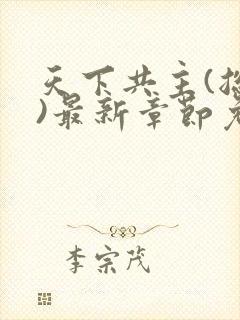 天下共主(
)最新章节
李宗茂